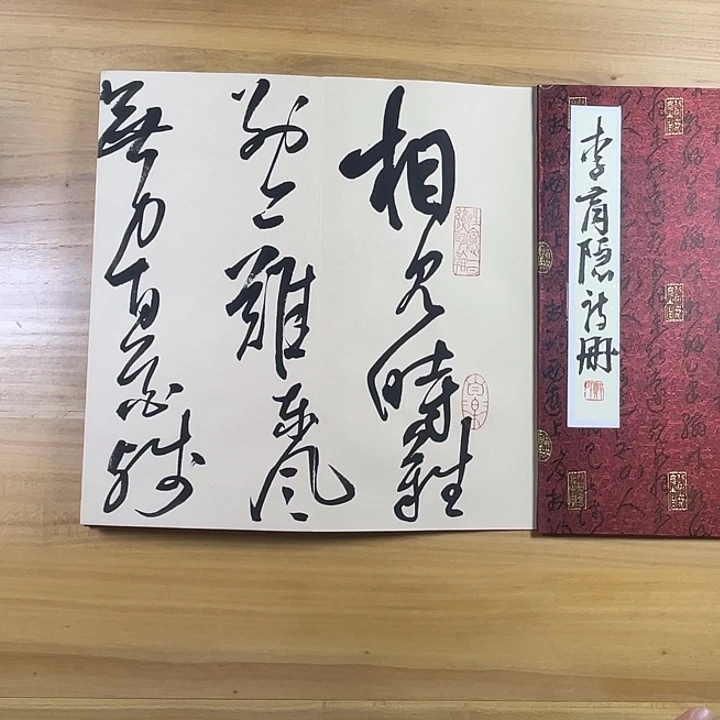 李商隱詩冊
相見時難
別亦難東風
無力百花殘